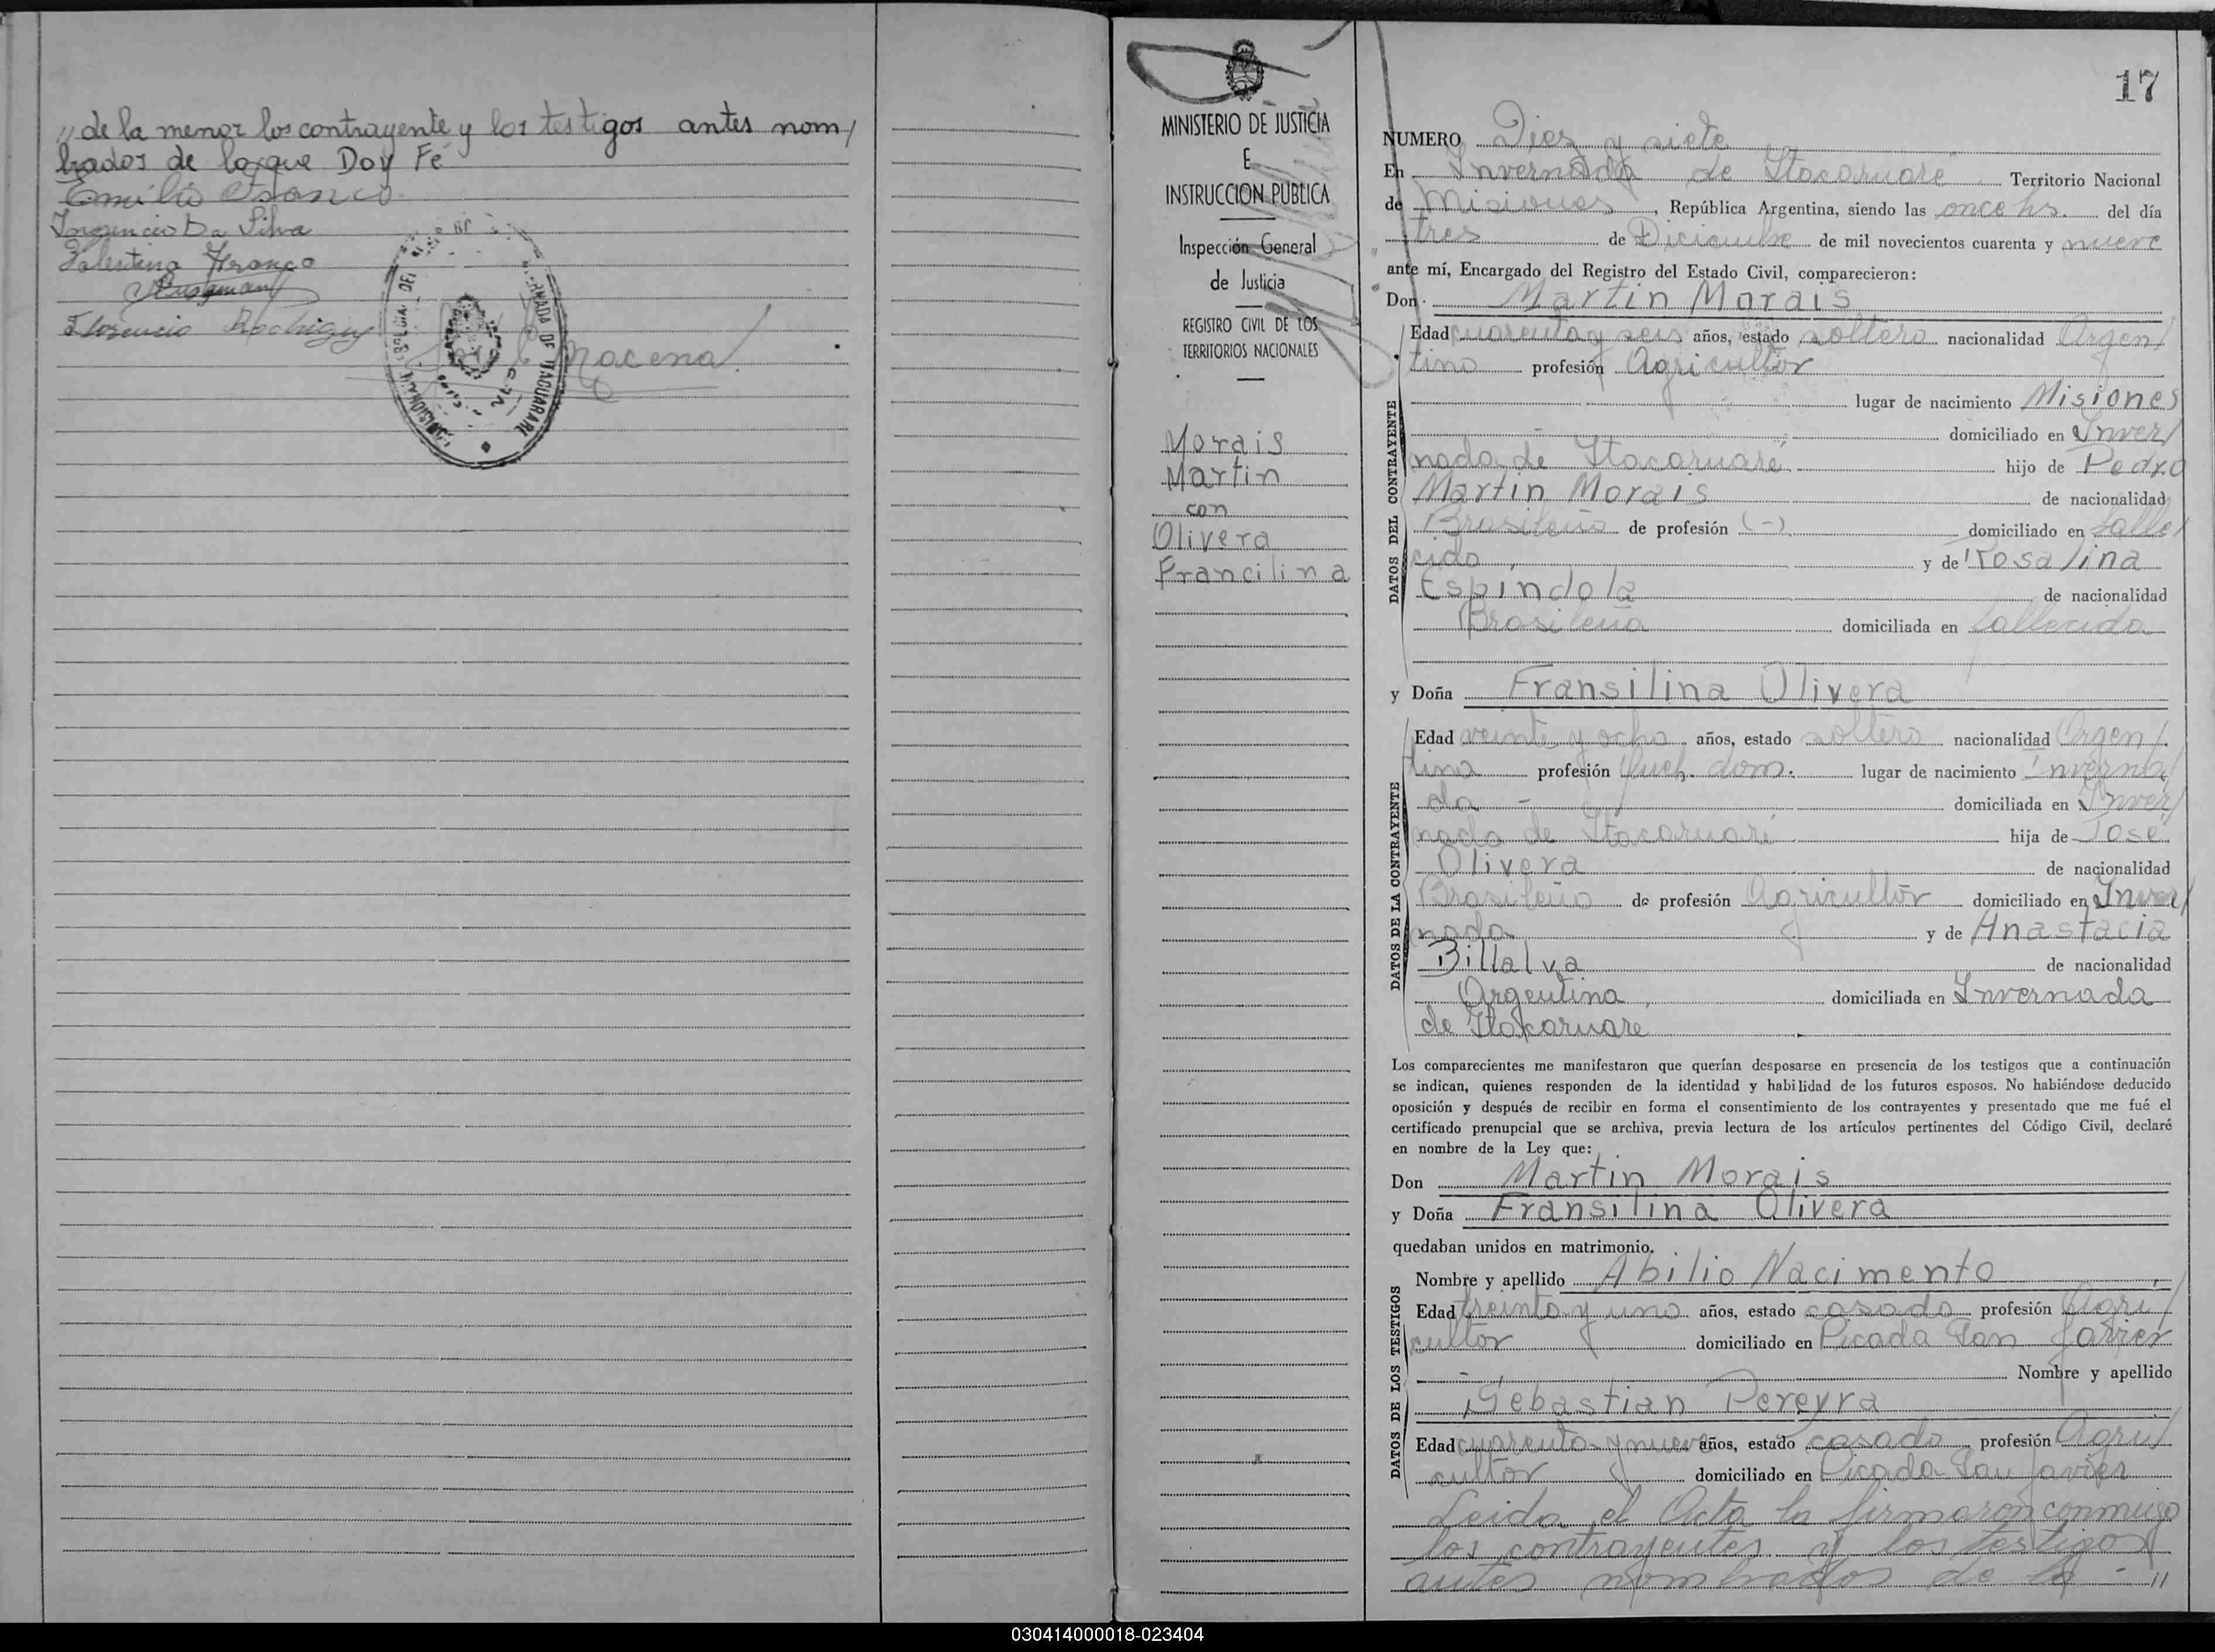 ,, de la menor los contrayente y los testigos antes nom/
brados de lo que Doy Fé
Emilio Franco
Da Silva
Valentina Franco
Florencio Rodriguez
Macena
17
MINISTERIO DE JUSTICIA
E
INSTRUCCION PUBLICA
Inspección General
de Justicia
REGISTRO CIVIL DE LOS
TERRITORIOS NACIONALES
Morais
Martin
con
Olivera
Francilina
NUMERO Diez y siete
En Invernada de Itacaruaré Territorio Nacional
de Misiones, República Argentina, siendo las once hs. del día
tres de Diciembre de mil novecientos cuarenta y nueve
ante mí, Encargado del Registro del Estado Civil, comparecieron:
Don Martin Morais
DATOS DEL CONTRAYENTE
Edad cuarenta y seis años, estado soltero nacionalidad Argen/
tino profesión Agricultor
lugar de nacimiento Misiones
domiciliado en Inver/
nada de Itacaruaré hijo de Pedro
Martin Morais de nacionalidad
Brasileño de profesión (-) domiciliado en falle/
cido, y de Rosalina
Espindola de nacionalidad
Brasileña domiciliada en fallecida
y Doña Fransilina Olivera
DATOS DE LA CONTRAYENTE
Edad veinte y ocho años, estado soltera nacionalidad Argen/
tina profesión Queh. dom. lugar de nacimiento Inverna/
da - domiciliada en Inver/
nada de Itacaruaré hija de José
Olivera de nacionalidad
Brasileño de profesión Agricultor domiciliado en Inver/
nada y de Anastacia
Billalva de nacionalidad
Argentina, domiciliada en Invernada
de Itacaruaré
Los comparecientes me manifestaron que querían desposarse en presencia de los testigos que a continuación
se indican, quienes responden de la identidad y habilidad de los futuros esposos. No habiéndose deducido
oposición y después de recibir en forma el consentimiento de los contrayentes y presentado que me fué el
certificado prenupcial que se archiva, previa lectura de los artículos pertinentes del Código Civil, declaré
en nombre de la Ley que:
Don Martin Morais
y Doña Fransilina Olivera
quedaban unidos en matrimonio.
DATOS DE LOS TESTIGOS
Nombre y apellido Abilio Nacimento
Edad treinta y uno años, estado casado profesión Agri/
cultor domiciliado en Picada San Javier
Nombre y apellido
Sebastian Pereyra
Edad cuarenta y nueve años, estado casado profesión Agri/
cultor domiciliado en Picada San Javier
Leida el Acta la firmaron conmigo
los contrayentes y los testigos
antes nombrados de lo - ,,
030414000018-023404